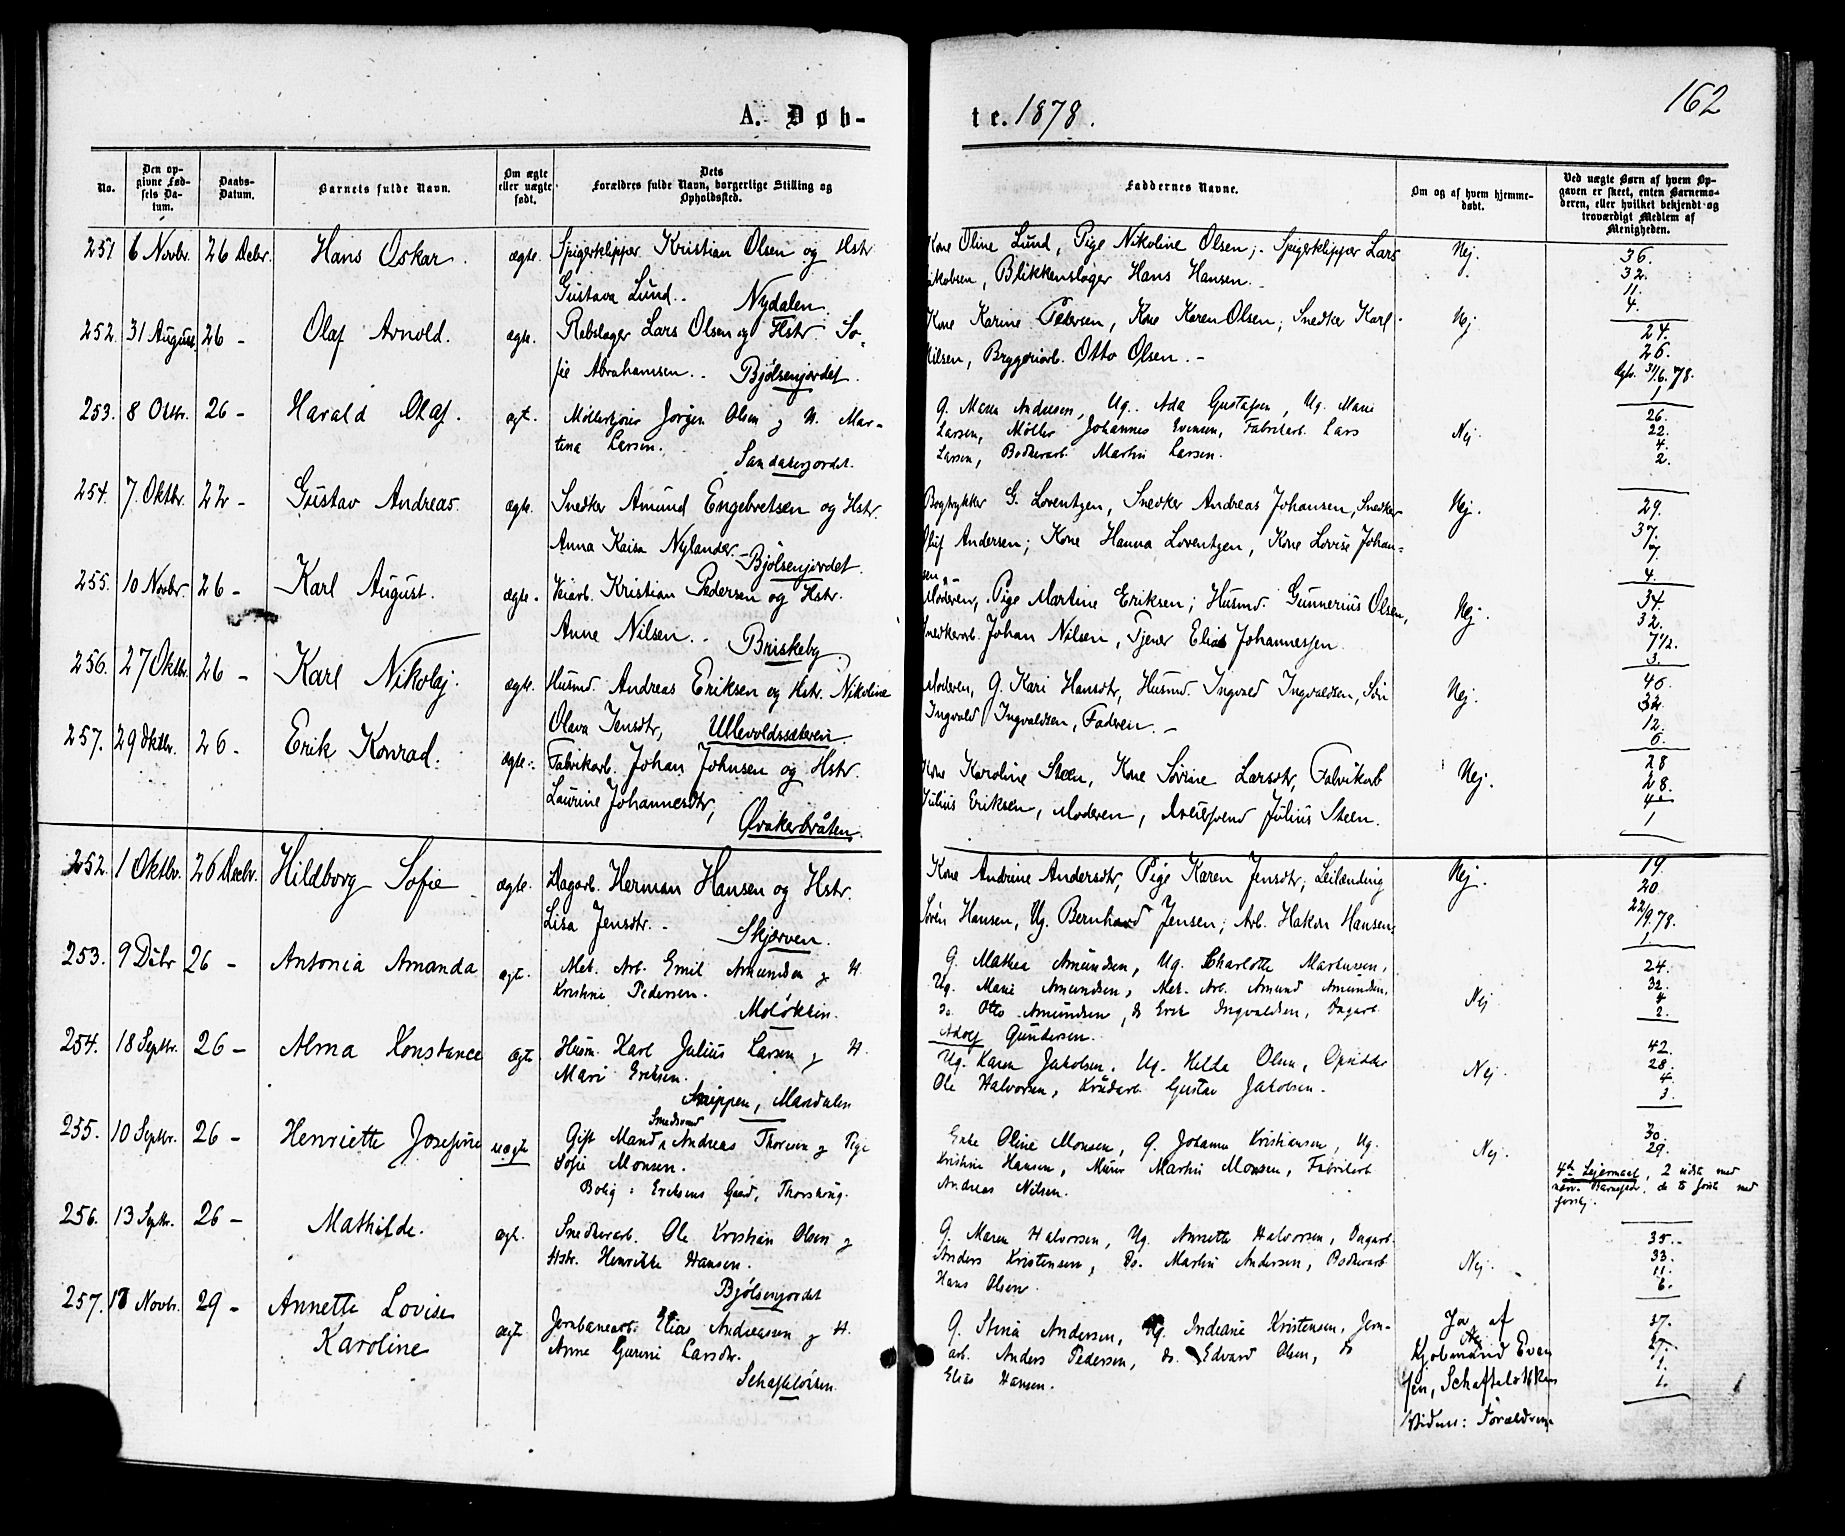 162
A. Døb-
te. 1878.
No.
Den op-
givne Fød-
sels Da-
tum.
Daabs-
Datum.
Barnets fulde Navn.
Om ægte
eller uægte
født.
Dets
Forældres fulde Navn, borgerlige Stilling og
Opholdssted.
Faddernes Navne.
Om og af hvem hjemme-
døbt.
Ved uægte Børn af hvem Op-
gaven er skeet, enten Barnemo-
deren, eller hvilket bekjendt og
troværdigt Medlem af
Menigheden.
251 6 Novbr. 26 Decbr. Hans Oskar. ægte. Spigerklipper Kristian Olsen og Hstr.
Gustava Lund. Nydalen.
Kone Oline Lund, Pige Nikoline Olsen; Spigerklipper Lars
Jakobsen, Blikkenslager Hans Hansen. Nej.
36.
32.
11.
4.
252. 31 August 26 - Olaf Arnold. ægte. Rebslager Lars Olsen og Hstr. So-
fie Abrahamsen. Bjølsenjordet.
Kone Karine Petersen, Kone Karen Olsen; Snedker Karl
Nilsen, Bryggeriarb. Otto Olsen. - Nej
24.
26.
31/6. 78.
1
253. 8 Oktbr. 26 - Harald Olaf. ægt. Møllerkjører Jørgen Olsen og H. Mar-
tina Larsen. Sandakerjordet.
G. Maren Andersen, Ug. Ada Gustafsen, Ug. Marie
Larsen, Møller Johannes Evensen, Fabrikarb. Lars
Larsen, Bødkerarb. Martin Larsen. Nej.
26.
22.
4.
2.
254. 7. Oktbr. 22 - Gustav Andreas. ægte. Snedker Amund Engebretsen og Hstr.
Anna Kaisa Nylander. - Bjølsenjordet.
Bogtrykker G. Lorentzen, Snedker Andreas Johansen, Snedker
Oluf Andersen; Kone Hanna Lorentzen, Kone Lovise Johan-
sen. - Nej.
29.
37.
7
4.
255. 10 Novbr. 26 - Karl August. ægte. Veiarb. Kristian Pedersen og Hstr.
Anne Nilsen. Briskeby.
Moderen, Pige Martine Eriksen; Husmd. Gunnerius Olsen,
Snedkerarb. Johan Nilsen, Tjener Elias Johannessen. Nej.
34.
32.
7 1/2.
3.
256. 27 Oktbr. 26 - Karl Nikolaj. ægte. Husmd. Andreas Eriksen og Hstr. Nikoline
Olava Jensdtr, Ullevoldssæteren.
Moderen, G. Kari Hansdtr, Husmd. Ingvald Ingvaldsen, Søn
Ingvald Ingvaldsen, Fadren. - Nej.
46.
32.
12.
6.
257. 29 Oktbr. 26 - Erik Konrad. ægte. Fabrikarb. Johan Johnsen og Hstr.
Laurine Johannesdtr, Øvrakerbråten.
Kone Karoline Steen, Kone Sørine Larsdtr, Fabrikarb
Julius Eriksen, Moderen, Julius Steen. Nej.
28
28.
4
1
252. 1 Oktbr. 26 Decbr. Hildborg Sofie ægte. Dagarb. Herman Hansen og Hstr.
Lisa Jensdtr. - Skjærven.
Kone Andrine Andersdtr, Pige Karen Jensdtr, Leilænding
Søren Hansen, Ug. Bernhard Jensen; Arb. Hakon Hansen. Nej.
19.
20.
22/9. 78.
1.
253. 9 Dcbr 26 - Antonia Amanda ægt. Mek. Arb. Emil Amundsen og H.
Kristine Pedersen. Moløkken.
G. Mathea Amundsen, Ug. Charlotte Martinsen,
Ug. Marie Amundsen, Mek. Arb. Amund Amundsen,
do. Otto Amundsen, do Erik Ingvaldsen, Dagarb.
Adolf Gundersen. Nej
24.
32.
4
2.
254. 18 Septbr. 26 - Alma Konstance ægt. Husm. Karl Julius Larsen og H.
Mari Eriksen. Snippen, Maridalen
Ug. Karen Jakobsen, Ug. Helda Olsen, Opsidder
Ole Halvorsen, Krudarb. Gustav Jakobsen. Nej.
42.
28.
4.
3.
255. 10 Septbr. 26 - Henriette Josefine uægte Gift Mand Smedsvend Andreas Thoresen og Pige
Sofie Monsen.
Bolig: Eriksens Gaard, Thorshaug.
Enke Oline Monsen, G. Johanne Kristiansen, Ug.
Kristine Hansen, Murer Martin Monsen, Fabrikarb
Andreas Nilsen. Nej.
30.
29.
4de Leiermaal, 2 sidste med
nærv. Barnefader, de to første med
forskj.
256. 13 Septbr. 26 - Mathilde. ægt. Snedkerarb. Ole Kristian Olsen og
Hstr. Henrikke Hansen. Bjølsenjordet
G. Maren Halvorsen, Ug. Annette Halvorsen, Dagarb.
Anders Kristensen, Do. Martin Andersen, Bødkerarb
Hans Olsen. Nej.
35.
33.
11.
6.
257. 17 Novbr. 29 - Annette Lovise
Karoline ægt. Jernbanearb. Elias Andreassen og H.
Anne Gurine Larsdtr. Schafteløkken.
G. Stina Andersen, Ug. Indiane Kristensen, Jern-
arb. Anders Pedersen, do. Edvard Olsen, do
Elias Hansen.
Ja, af
Kjøbmand Even
sen, Schafteløkken
Vidner: Forældrene
37.
27.
1.
1.